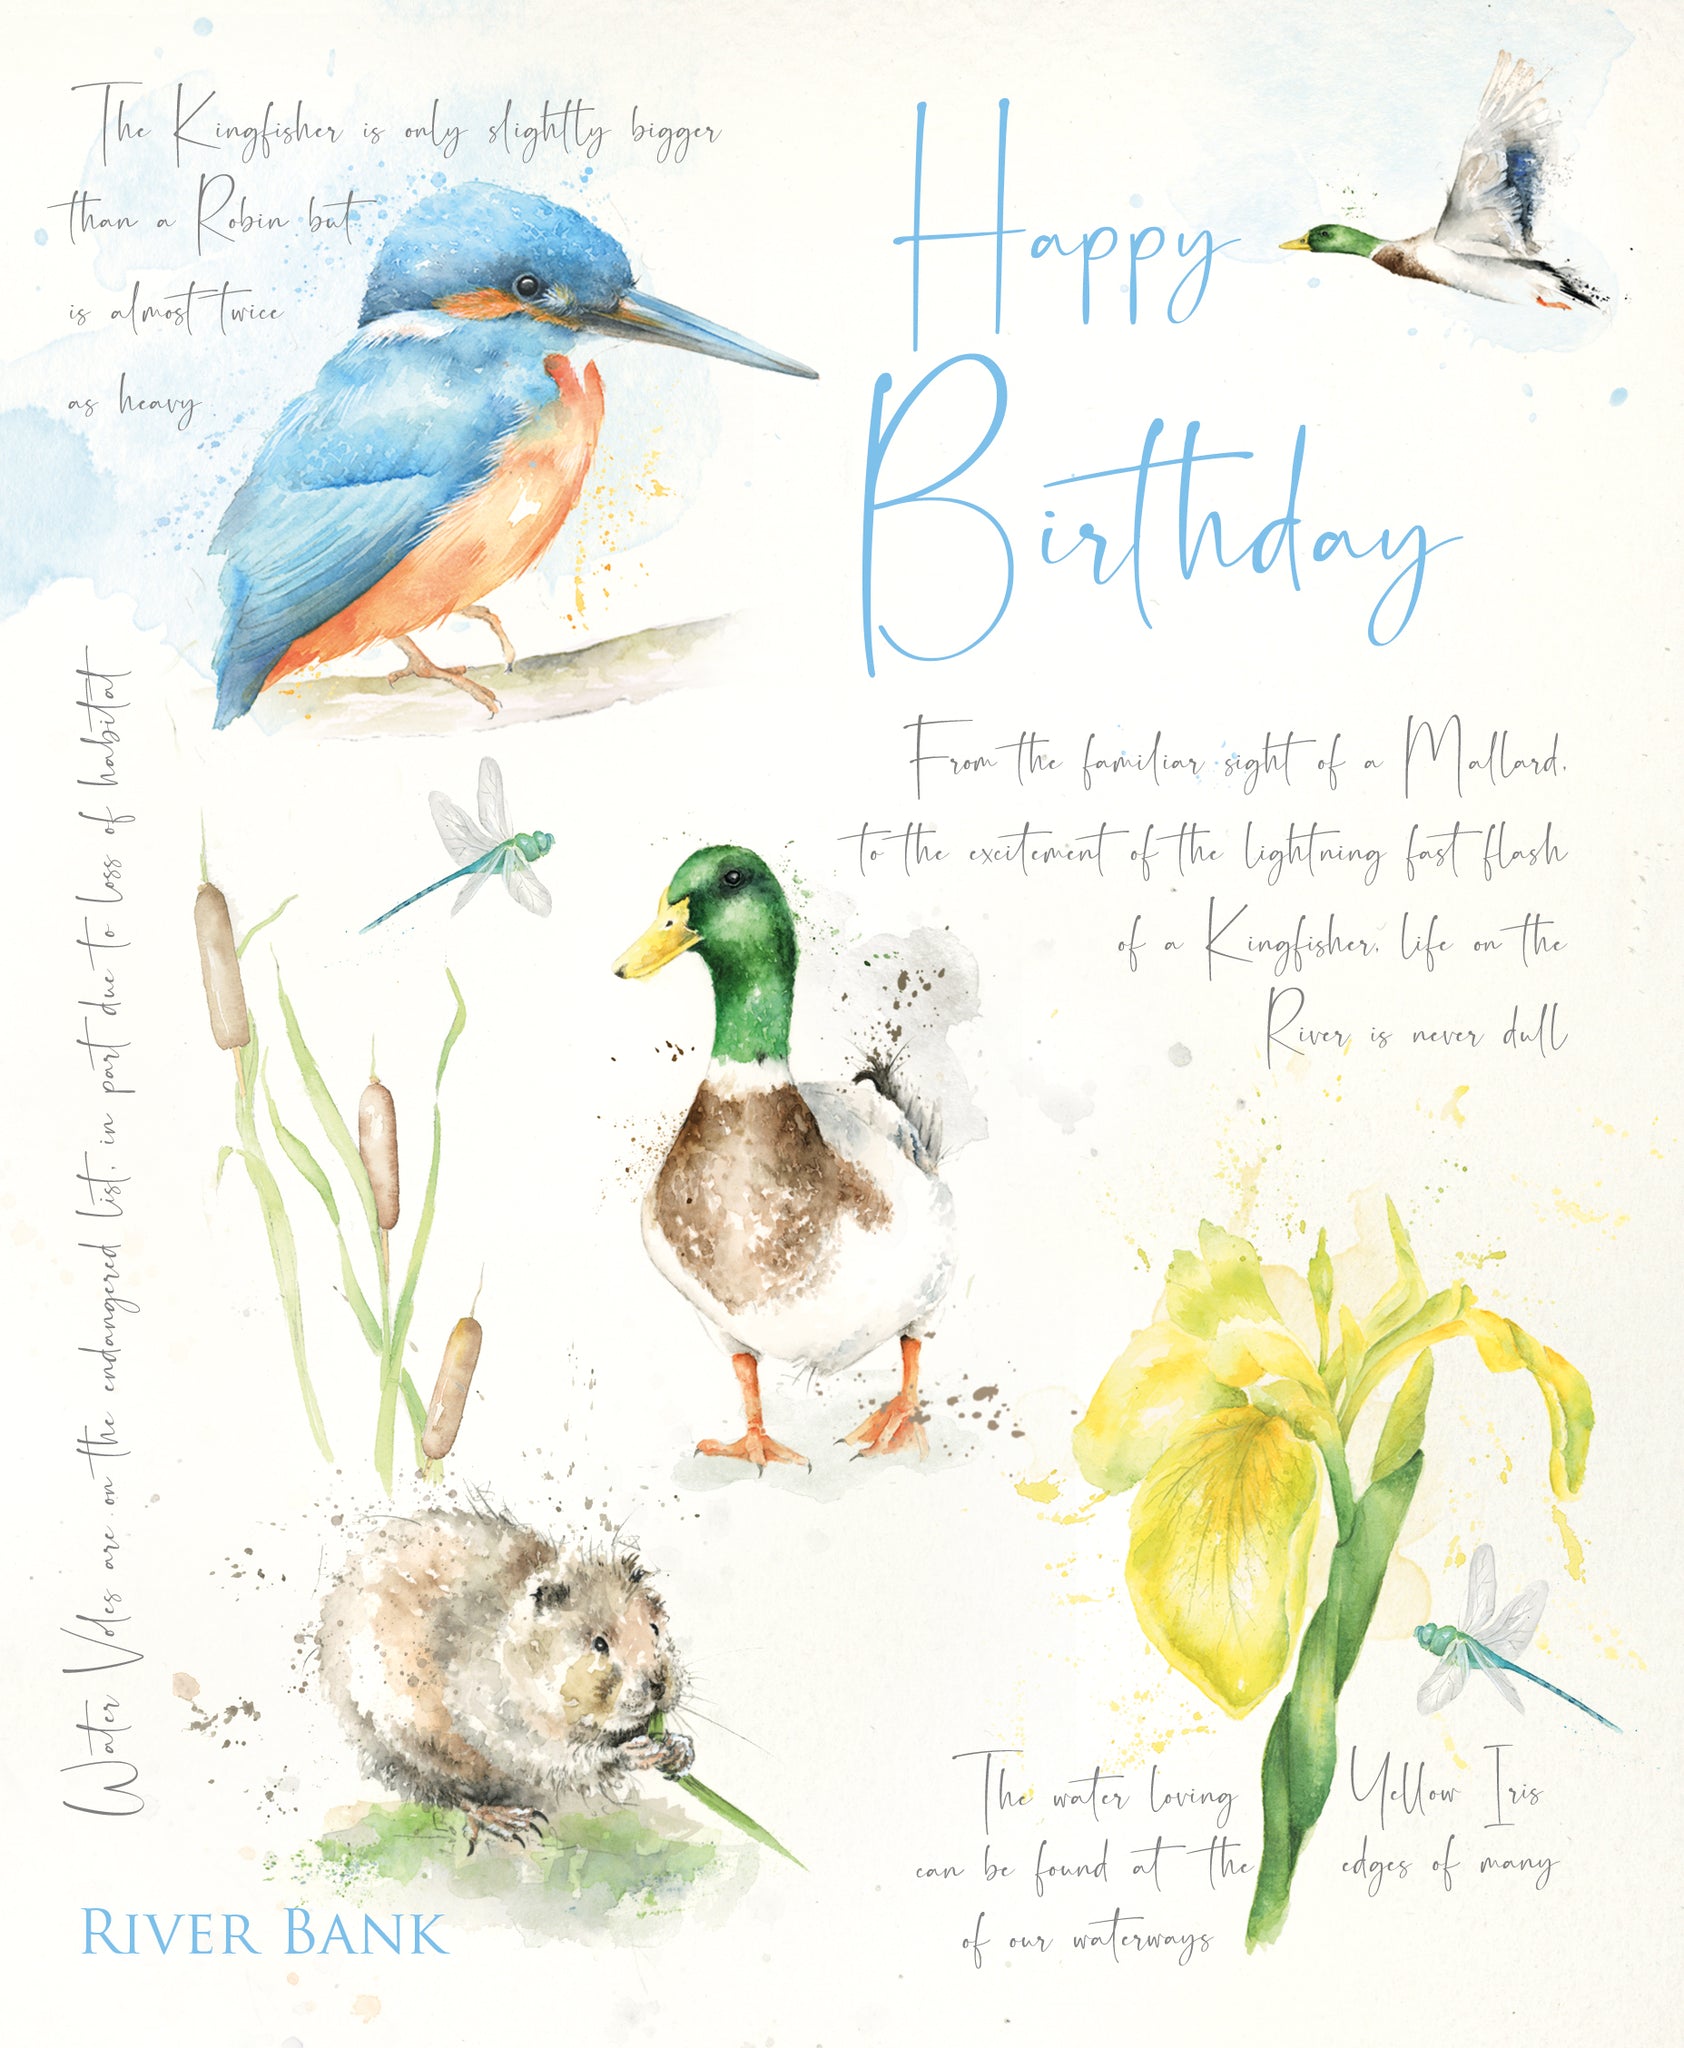 The Kingfisher is only slightly bigger
than a Robin but
is almost twice
as heavy
Happy
Birthday
From the familiar sight of a Mallard,
to the excitement of the lightning fast flash
of a Kingfisher, life on the
River is never dull
Water Voles are on the endangered list, in part due to loss of habitat
The water loving Yellow Iris
can be found at the edges of many
of our waterways
RIVER BANK